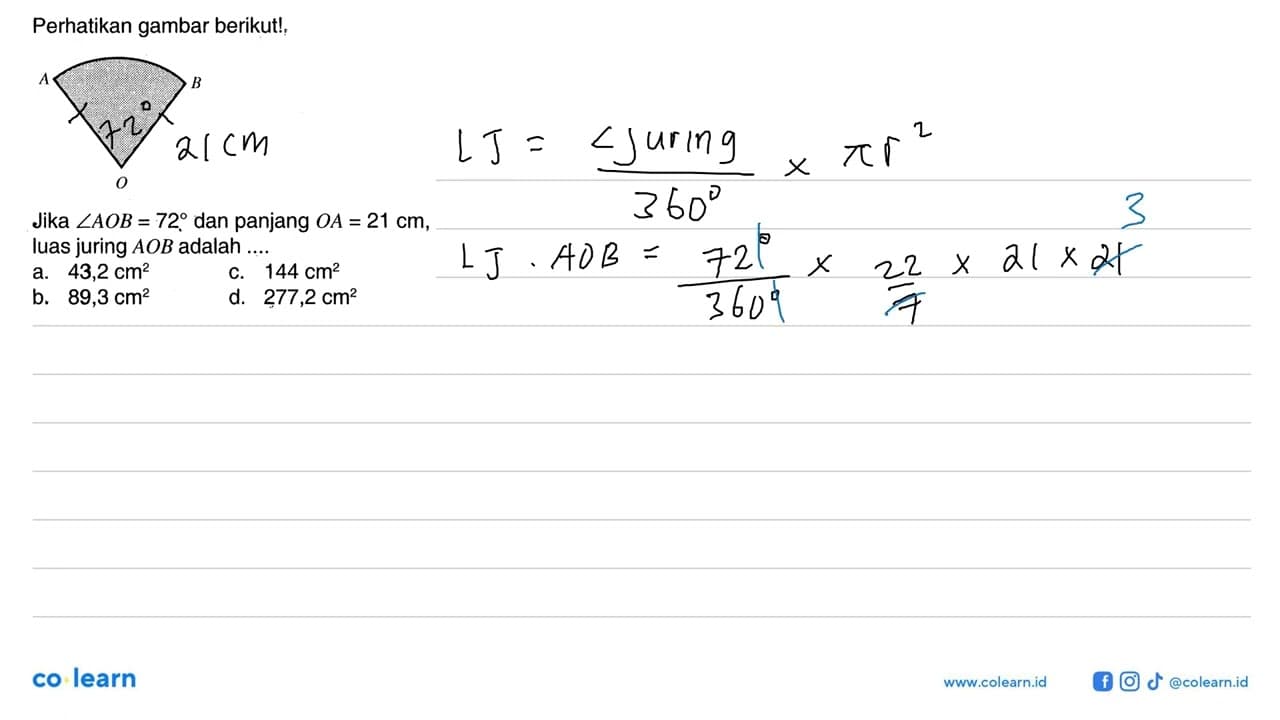 Perhatikan gambar berikut!
A
B
72°
21 cm
O
Jika ∠AOB = 72° dan panjang OA = 21 cm,
luas juring AOB adalah ....
a. 43,2 cm² c. 144 cm²
b. 89,3 cm² d. 277,2 cm²
LJ = <juring/360° × πr²
3
LJ . AOB = 72°/360° × 22/7 × 21 × 21
co learn
www.colearn.id
@colearn.id